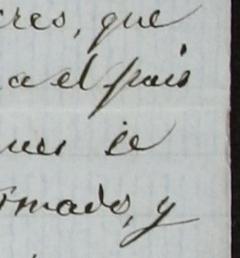 cres, que
a el pais
ues se
rmado, y